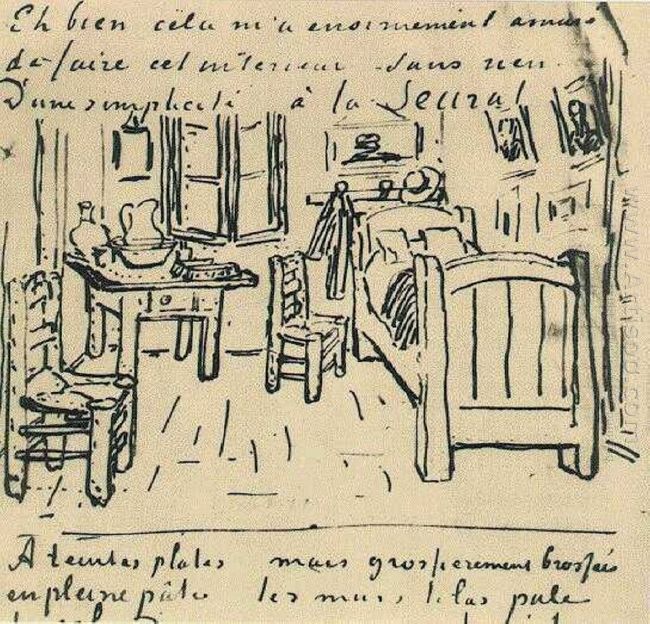 Eh bien cela m'a enormement amusé
de faire cet interieur sans rien
D'une simplicité à la Seurat
A teintes plates mais grossierement brossées
en pleine pâte les murs lilas pale
www.artisoo.com